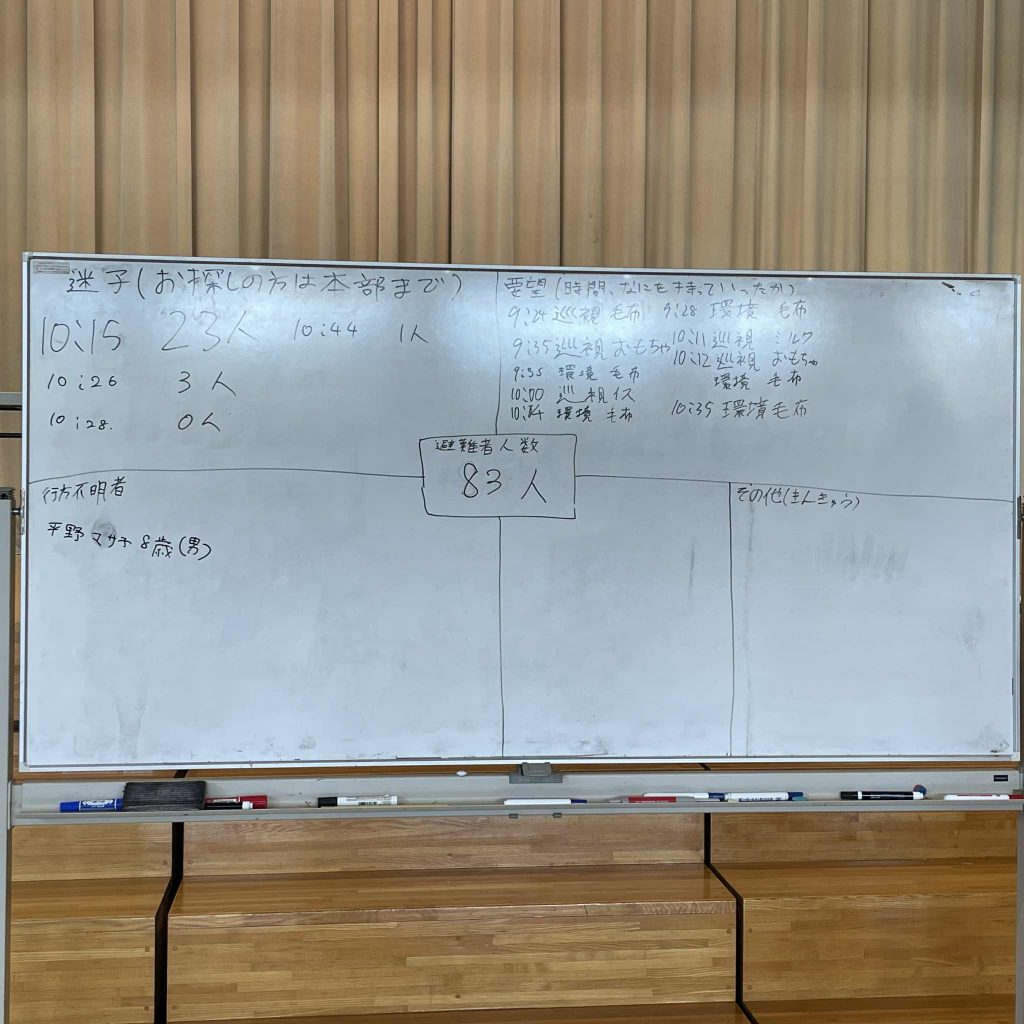 迷子(お探しの方は本部まで)
10:15 23人 10:44 1人
10:26 3人
10:28. 0人
要望(時間、なにを持っていったか)
9:24 巡視 毛布 9:28 環境 毛布
9:35 巡視 おもちゃ 10:11 巡視 ミルク
10:12 巡視 おもちゃ
9:55 環境 毛布 環境 毛布
10:00 巡視 イス
環境 毛布 10:35 環境 毛布
避難者人数
83人
行方不明者
平野 マサキ 8歳(男)
その他(きんきゅう)